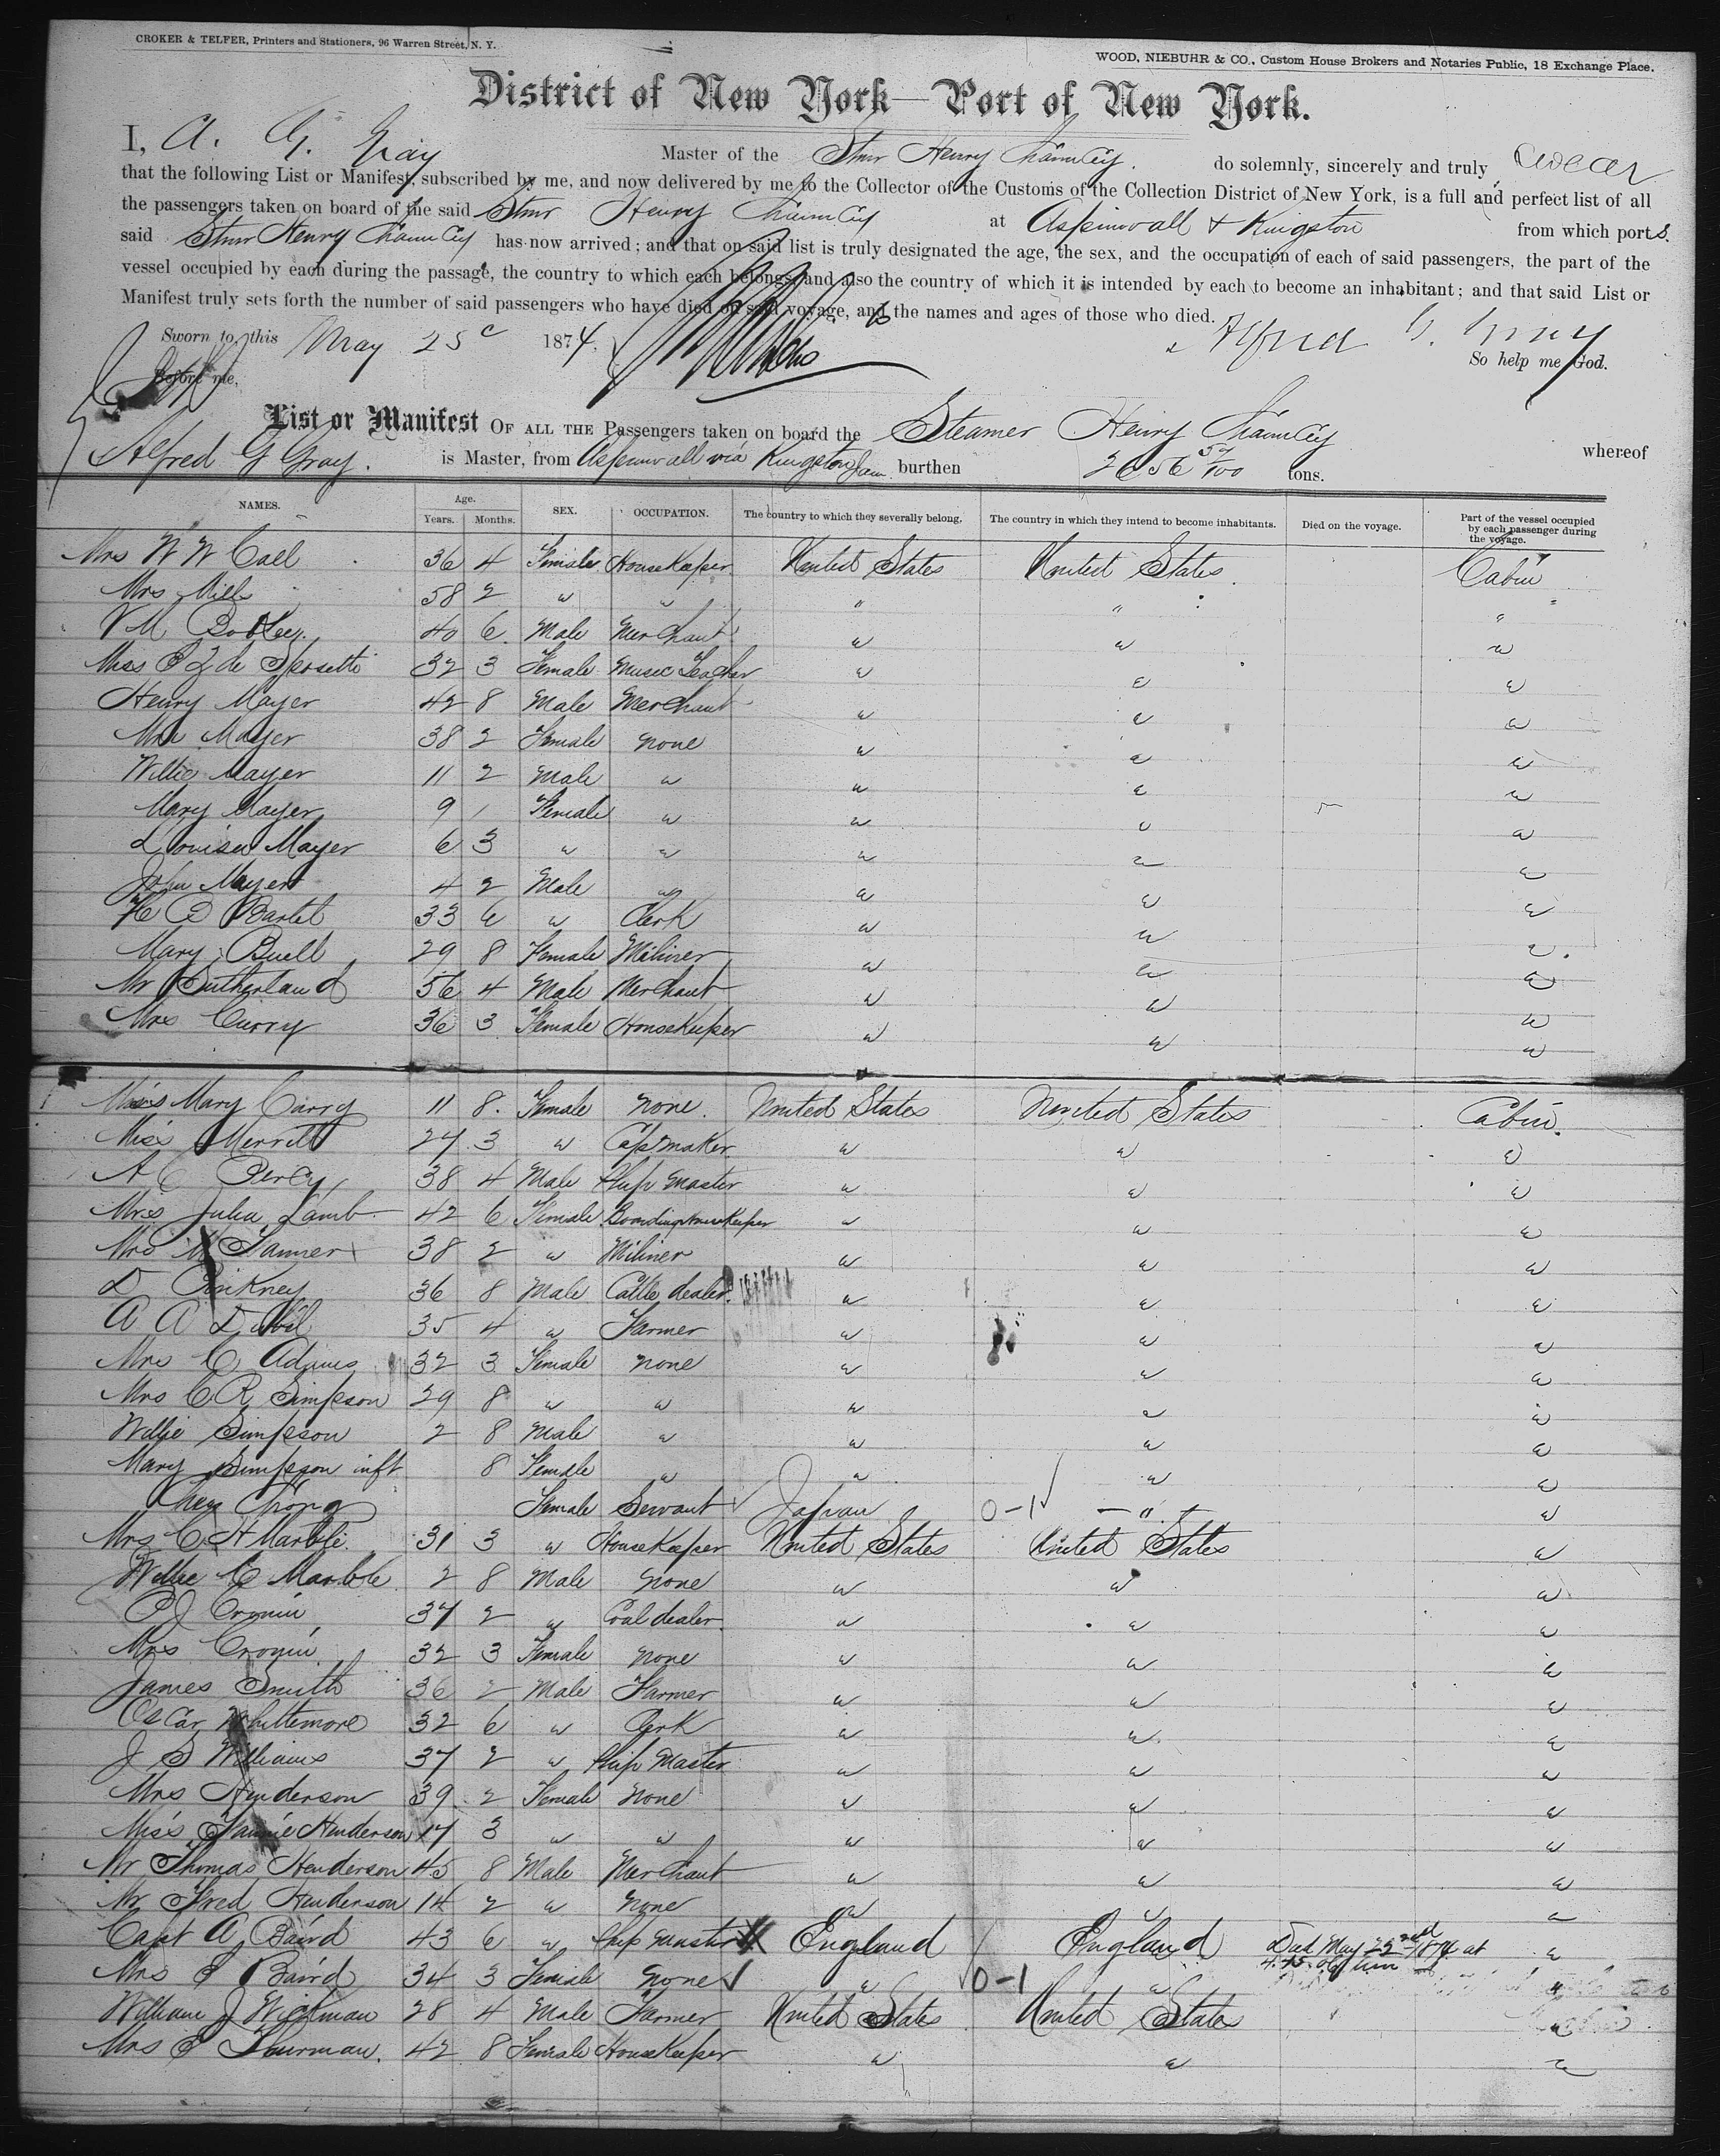 CROKER & TELFER, Printers and Stationers, 96 Warren Street, N. Y.
WOOD, NIEBUHR & CO., Custom House Brokers and Notaries Public, 18 Exchange Place.
District of New York—Port of New York.
I, A. G. Gray Master of the Stmr Henry Chauncey. do solemnly, sincerely and truly swear
that the following List or Manifest, subscribed by me, and now delivered by me to the Collector of the Customs of the Collection District of New York, is a full and perfect list of all
the passengers taken on board of the said Stmr Henry Chauncey at Aspinwall & Kingston from which ports.
said Stmr Henry Chauncey has now arrived; and that on said list is truly designated the age, the sex, and the occupation of each of said passengers, the part of the
vessel occupied by each during the passage, the country to which each belongs, and also the country of which it is intended by each to become an inhabitant; and that said List or
Manifest truly sets forth the number of said passengers who have died on said voyage, and the names and ages of those who died.
Sworn to, this May 25 1874. Alfred G. Gray
Before me, So help me God.
List or Manifest OF ALL THE Passengers taken on board the Steamer Henry Chauncey whereof
Alfred G Gray. is Master, from Aspinwall via Kingston Jam burthen 2656 57/100 tons.
NAMES. Age. Years. Months. SEX. OCCUPATION. The country to which they severally belong. The country in which they intend to become inhabitants. Died on the voyage. Part of the vessel occupied by each passenger during the voyage.
Mrs W W Call 36 4 Female Housekeeper United States United States Cabin
Mrs Mills 58 2 " " " " "
40 6 Male Merchant " " "
Miss 32 3 Female Music Teacher " " "
Henry Mayer 42 8 Male Merchant " " "
Mrs Mayer 38 2 Female none " " "
Willie Mayer 11 2 Male " " " "
Mary Mayer 9 1 Female " " " "
Louisa Mayer 6 3 " " " " "
John Mayer 4 2 Male " " " "
Bartel 33 6 " Clerk " " "
Mary Buell 29 8 Female Miliner " " "
Mr Sutherland 56 4 Male Merchant " " "
Mrs Curry 36 3 Female Housekeeper " " "
Miss Mary Curry 11 8 Female none United States United States Cabin.
Miss Merrill 24 3 " Cap maker " " "
A C Percy 38 4 Male Ship Master " " "
Mrs Julia Lamb 42 6 Female Boardinghousekeeper " " "
Mrs M Tanner 38 2 " Miliner " " "
D Pinkney 36 8 Male Cattle dealer " " "
A A 35 4 " Farmer " " "
Mrs C Adams 32 3 Female none " " "
Mrs C R Simpson 29 8 " " " " "
Willie Simpson 2 8 Male " " " "
Mary Simpson inft 8 Female " " " "
Chong Female Servant Japan 0-1 " "
Mrs C H Marble 31 3 " Housekeeper United States United States "
Willie C Marble 2 8 Male none " " "
P J Cronin 37 2 " Coal dealer " " "
Mrs Cronin 32 3 Female none " " "
James Smith 36 2 Male Farmer " " "
Oscar Whittemore 32 6 " Clerk " " "
J S Williams 37 2 " Ship Master " " "
Mrs Henderson 39 2 Female none " " "
Miss Fannie Henderson 17 3 " " " " "
Mr Thomas Henderson 45 8 Male Merchant " " "
Mr Fred Henderson 14 2 " none " " "
Capt A Baird 43 6 " Ship Master England England Died May 22nd 1874 at "
Mrs S Baird 34 3 Female none " 0-1 " "
William J Wickman 28 4 Male Farmer United States United States "
Mrs S Thurman. 42 8 Female Housekeeper " " "